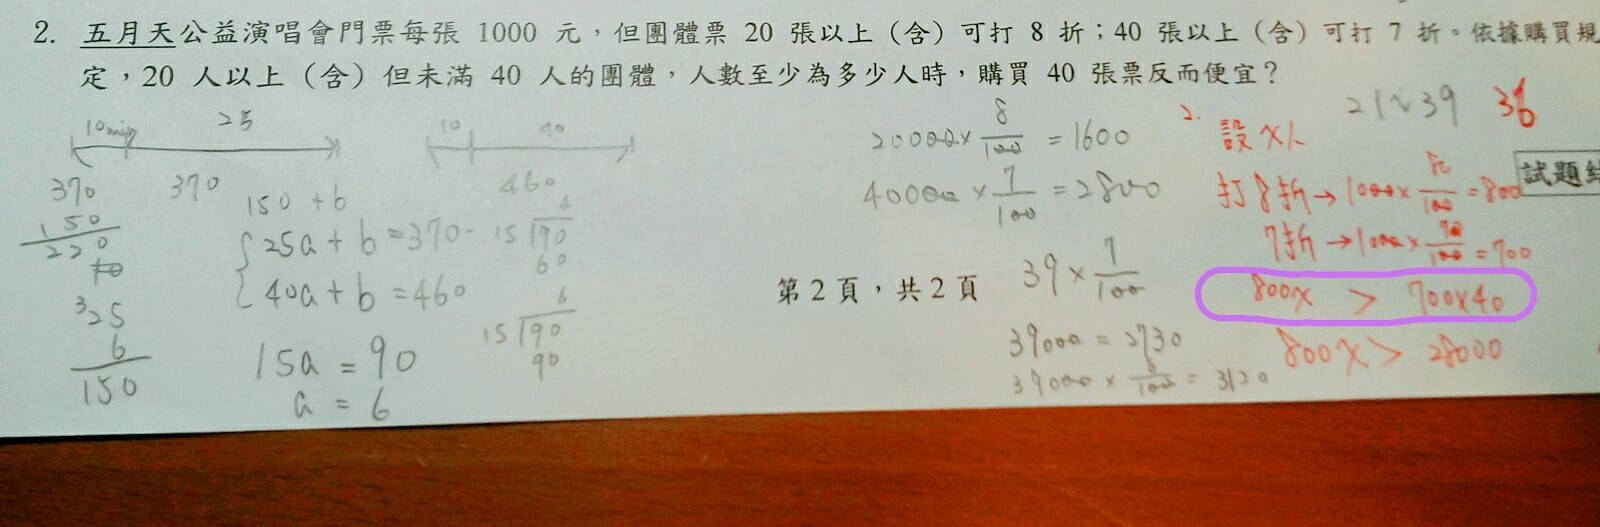 2. 五月天公益演唱會門票每張 1000 元，但團體票 20 張以上（含）可打 8 折；40 張以上（含）可打 7 折。依據購買規
定，20 人以上（含）但未滿 40 人的團體，人數至少為多少人時，購買 40 張票反而便宜？
10min 25
370 370
150
220
325
6
150
150 + b
25a + b = 370
40a + b = 460
15a = 90
a = 6
10 90
460
15 190
60
6
15 190
90
20000 × 8/100 = 1600
40000 × 7/100 = 2800
第 2 頁，共 2 頁
39 × 7/100
39000 = 2730
39000 × 8/100 = 3120
21~39 36
2. 設 x人
打8折→1000× 80/100 = 800
7折→1000× 70/100 = 700
800x > 700x40
800x > 28000
試題結